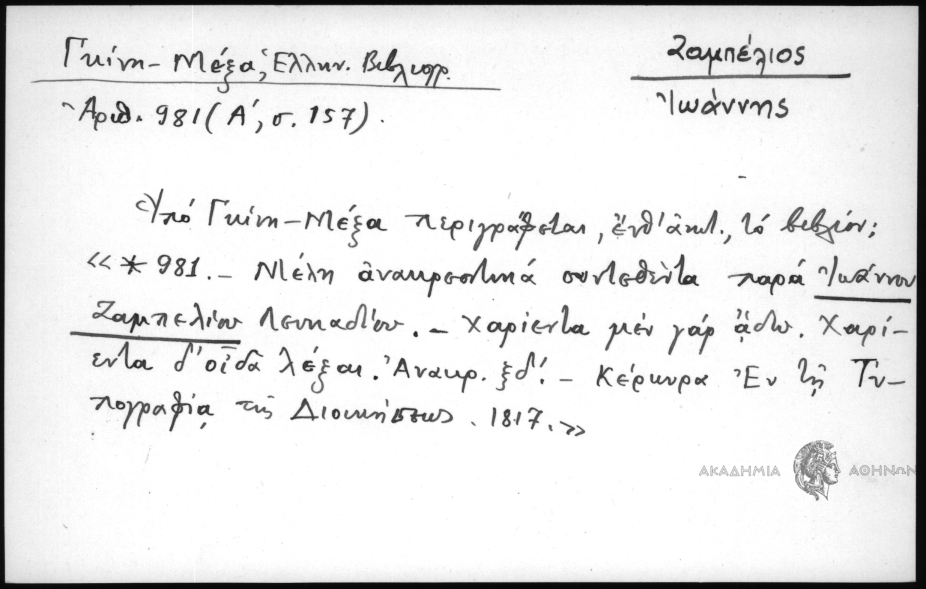 Γκίνη - Μέξα, Ἑλλην. Βιβλιογρ.
Ζαμπέλιος
Ἰωάννης
Ἀριθ. 981 (Α', σ. 157).
Ὑπό Γκίνη - Μέξα περιγράφεται, ἔνθ' ἀνωτ., τό βιβλίον;
«* 981. – Μέλη ἀνακρεοντικά συντεθέντα παρά Ἰωάννου
Ζαμπελίου Λευκαδίου. – Χαρίεντα μέν γάρ ᾄδω. Χαρί-
εντα δ' οἶδα λέξαι. Ἀνακρ. ξδ'. – Κέρκυρα Ἐν τῇ Τυ-
πογραφίᾳ τῆς Διοικήσεως. 1817.»
ΑΚΑΔΗΜΙΑ ΑΘΗΝΩΝ